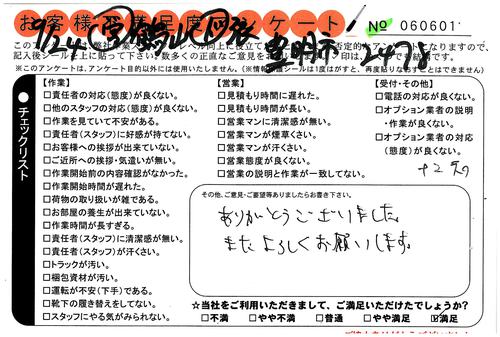 お客様ご満足度アンケート
№ 060601
9/24
豊明市
2478
記入後シールを上に貼って下さい。
※このアンケートは、アンケート目的以外には使用いたしません。(※情報保護シールは1度はがすと、再度貼りなおすことはできません)
チェックリスト
【作業】
□責任者の対応(態度)が良くない。
□他のスタッフの対応(態度)が良くない。
□作業を見ていて不安がある。
□責任者(スタッフ)に好感が持てない。
□お客様への挨拶が出来ていない。
□ご近所への挨拶・気遣いが無い。
□作業開始前の内容確認がなかった。
□作業開始時間が遅れた。
□荷物の取り扱いが雑である。
□お部屋の養生が出来ていない。
□作業時間が長すぎる。
□責任者(スタッフ)に清潔感が無い。
□責任者(スタッフ)が汗くさい。
□トラックが汚い。
□梱包資材が汚い。
□運転が不安(下手)である。
□靴下の履き替えをしてない。
□スタッフにやる気がみられない。
【営業】
□見積もり時間に遅れた。
□見積もり時間が長い。
□営業マンに清潔感が無い。
□営業マンが煙草くさい。
□営業マンが汗くさい。
□営業態度が良くない。
□営業の説明と作業が一致してない。
【受付・その他】
□電話の対応が良くない。
□オプション業者の説明
・作業が良くない。
□オプション業者の対応
(態度)が良くない。
その他、ご意見・ご要望等ありましたらお書き下さい。
ありがとうございました。
またよろしくお願いします。
☆当社をご利用いただきまして、ご満足いただけたでしょうか?
□不満 □やや不満 □普通 □やや満足 ☑満足